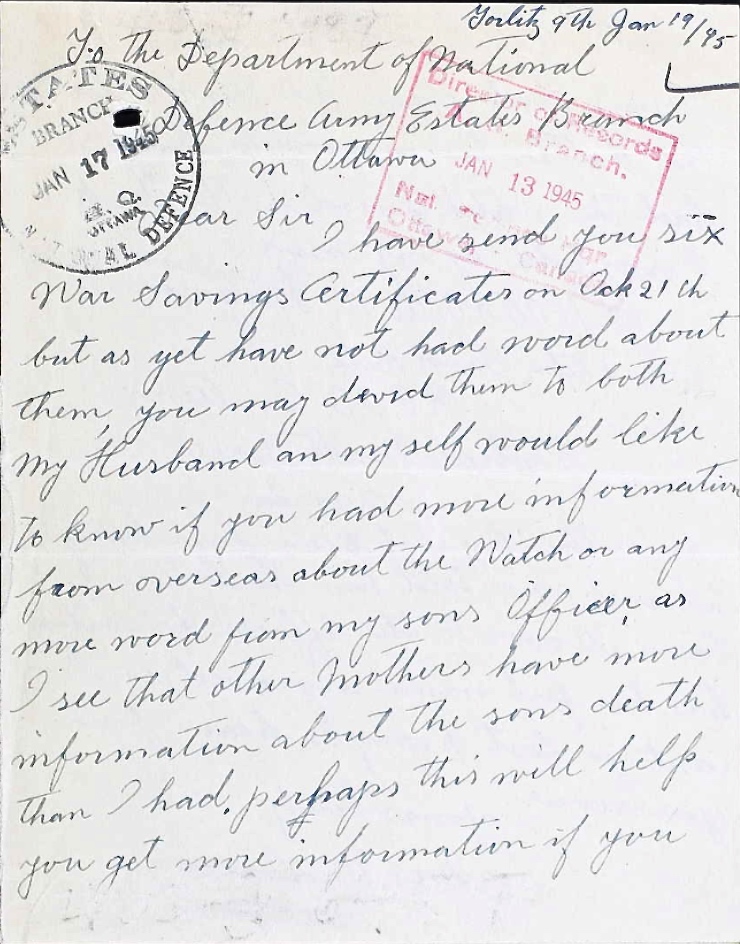 Gorlitz 9th Jan 19/45
To the Department of National
Defence Army Estates Branch
in Ottawa
Dear Sir
I have send you six
War Savings Certificates on Ock 21 th
but as yet have not had word about
them, you may devid them to both
my Husband an my self would like
to know if you had more information
from overseas about the Watch or any
more word from my sons Officer, as
I see that other Mothers have more
information about the sons death
than I had, perhaps this will help
you get more information if you
ESTATES
BRANCH
JAN 17 1945
OTTAWA
NATIONAL DEFENCE
Director of Records
Branch.
JAN 13 1945
Nat.
Ottawa, Canada